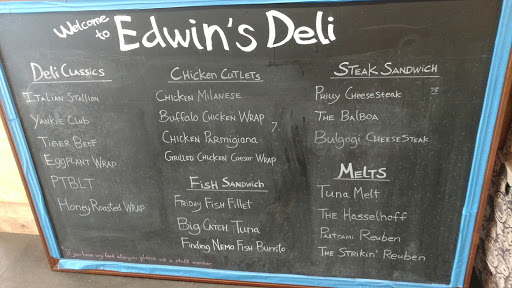 Welcome to Edwin's Deli
Deli Classics
Italian Stallion
Yankee Club
Tiger Beef
Eggplant Wrap
PTBLT
Honey Roasted Wrap
Chicken Cutlets
Chicken Milanese
Buffalo Chicken Wrap
Chicken Parmigiana 7.
Grilled Chicken Caesar Wrap
Fish Sandwich
Friday Fish Fillet
Big Catch Tuna
Finding Nemo Fish Burrito
Steak Sandwich
Philly Cheesesteak
The Balboa
Bulgogi Cheesesteak
Melts
Tuna Melt
The Hasselhoff
Pastrami Reuben
The Strikin' Reuben
If you have any food allergies please ask a staff member